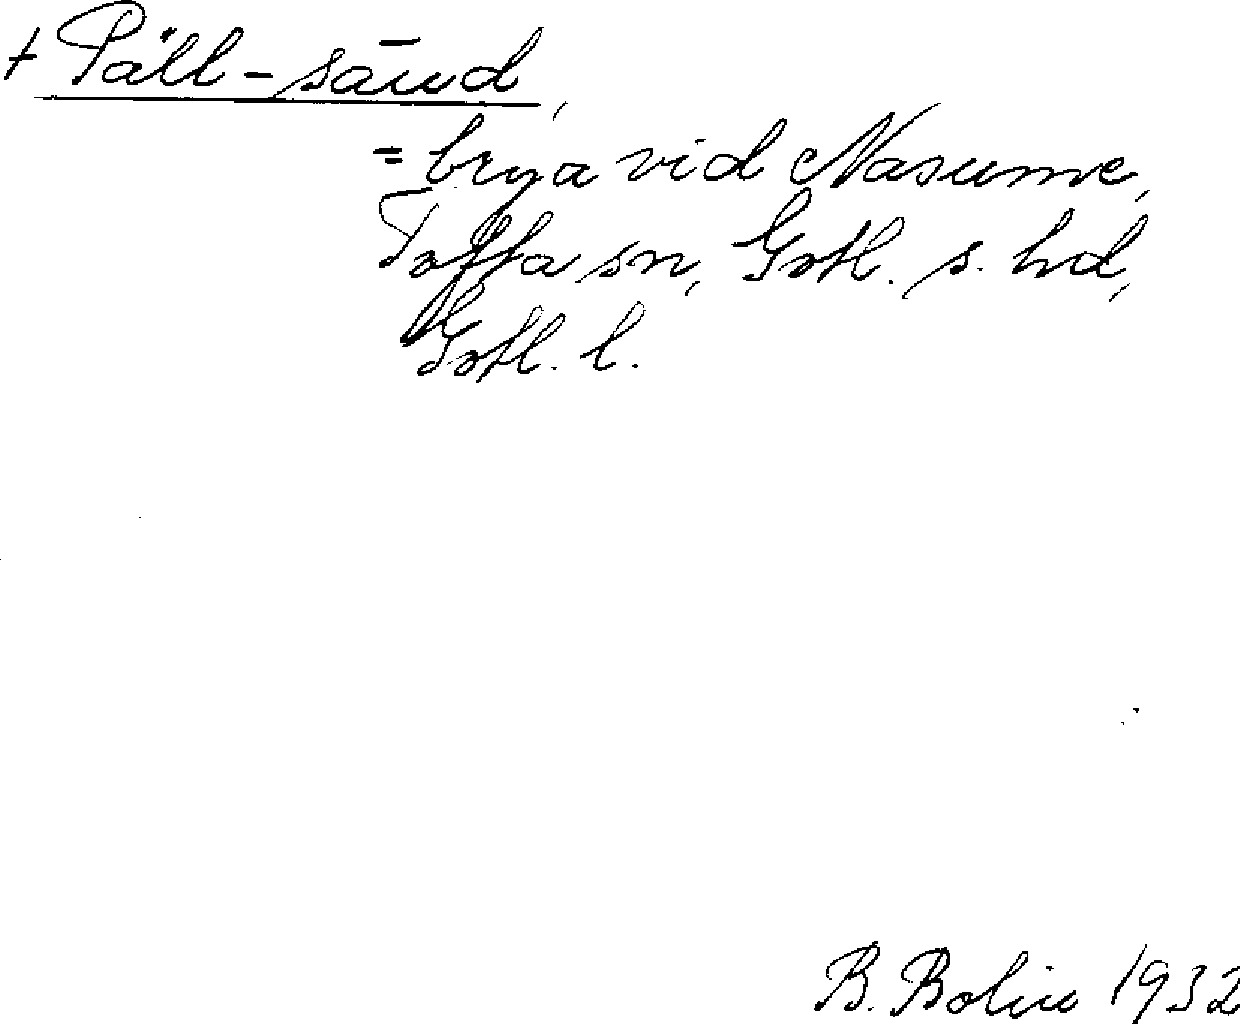 + Päll-sānd,
= brya vid Nasume,
Tofta sn, Gotl. s. hd,
Gotl. l.
B. Bolin 1932